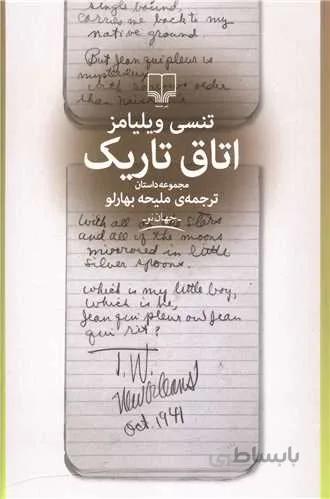 single bound,
Carries me back to my
native ground.
But Jean qui pleur is
with older
than
تنسی ویلیامز
اتاق تاریک
مجموعه داستان
ترجمه‌ی ملیحه بهارلو
-جهان نو-
With all stars
and all of the moons
mirrored in little
silver spoons.
Which is my little boy,
which is he,
Jean qui pleur ou Jean
qui rit?
T. W.
New Orleans
Oct. 1941